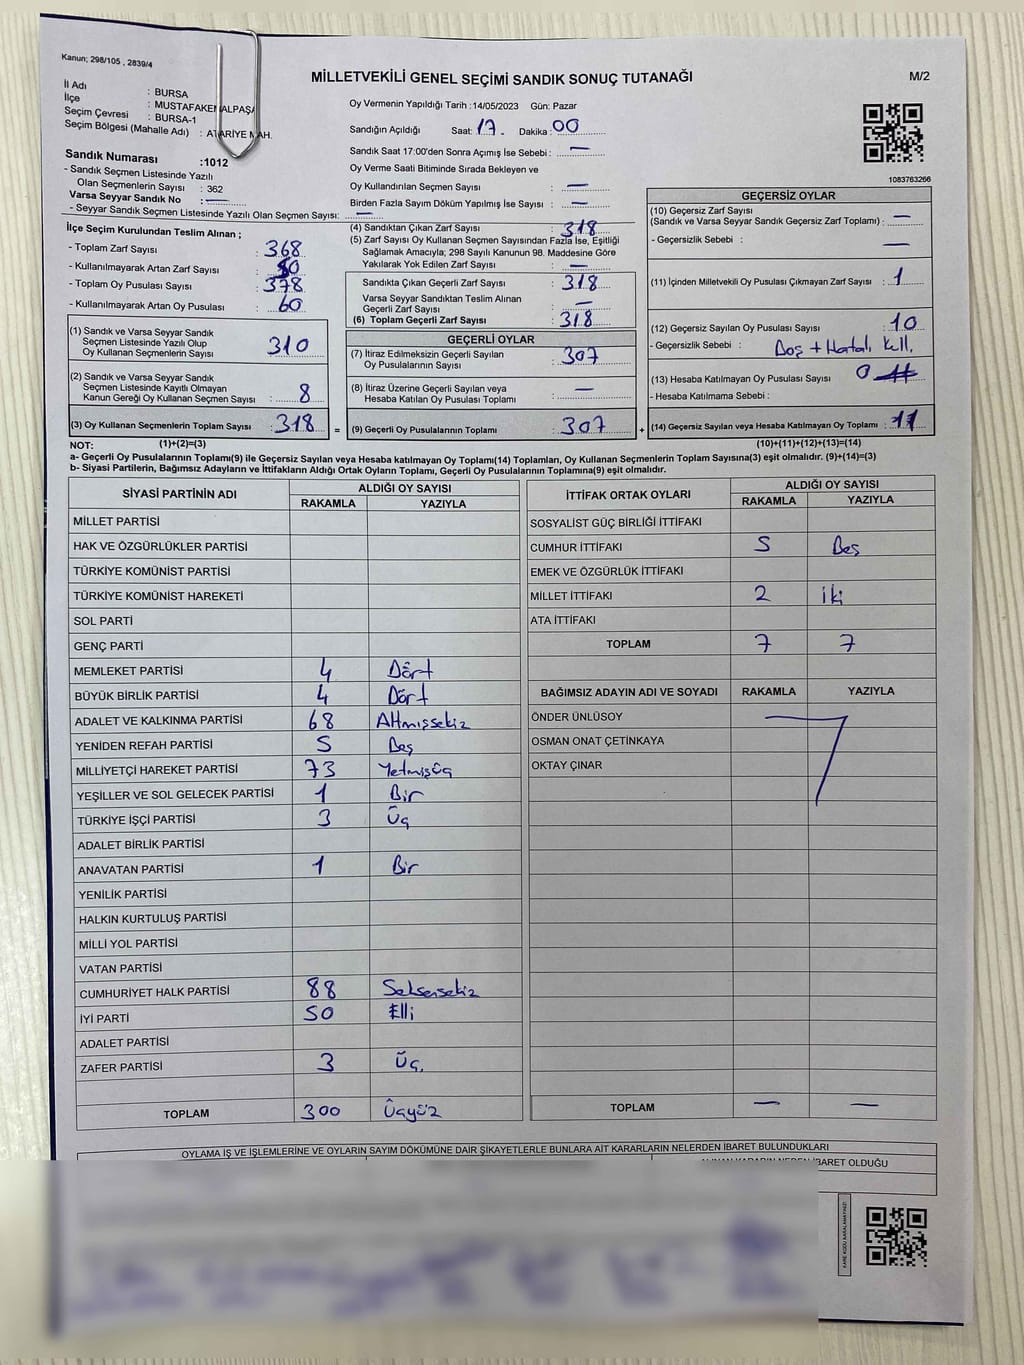 Kanun; 298/105 , 2839/4
MİLLETVEKİLİ GENEL SEÇİMİ SANDIK SONUÇ TUTANAĞI
M/2
İl Adı : BURSA
İlçe : MUSTAFAKEMALPAŞA
Seçim Çevresi : BURSA-1
Seçim Bölgesi (Mahalle Adı) : MAH.
Sandık Numarası :1012
- Sandık Seçmen Listesinde Yazılı
Olan Seçmenlerin Sayısı : 362
Varsa Seyyar Sandık No : —
- Seyyar Sandık Seçmen Listesinde Yazılı Olan Seçmen Sayısı: —
Oy Vermenin Yapıldığı Tarih :14/05/2023 Gün: Pazar
Sandığın Açıldığı Saat: 17. Dakika: 00
Sandık Saat 17:00'den Sonra Açımış İse Sebebi : —
Oy Verme Saati Bitiminde Sırada Bekleyen ve
Oy Kullandırılan Seçmen Sayısı : —
Birden Fazla Sayım Döküm Yapılmış İse Sayısı : —
1083763266
İlçe Seçim Kurulundan Teslim Alınan ;
- Toplam Zarf Sayısı : 368
- Kullanılmayarak Artan Zarf Sayısı : 50
- Toplam Oy Pusulası Sayısı : 378
- Kullanılmayarak Artan Oy Pusulası : 60
(1) Sandık ve Varsa Seyyar Sandık
Seçmen Listesinde Yazılı Olup
Oy Kullanan Seçmenlerin Sayısı : 310
(2) Sandık ve Varsa Seyyar Sandık
Seçmen Listesinde Kayıtlı Olmayan
Kanun Gereği Oy Kullanan Seçmen Sayısı : 8
(3) Oy Kullanan Seçmenlerin Toplam Sayısı : 318 =
(4) Sandıktan Çıkan Zarf Sayısı : 318
(5) Zarf Sayısı Oy Kullanan Seçmen Sayısından Fazla İse, Eşitliği
Sağlamak Amacıyla; 298 Sayılı Kanunun 98. Maddesine Göre
Yakılarak Yok Edilen Zarf Sayısı : —
Sandıkta Çıkan Geçerli Zarf Sayısı : 318
Varsa Seyyar Sandıktan Teslim Alınan
Geçerli Zarf Sayısı : —
(6) Toplam Geçerli Zarf Sayısı : 318
GEÇERLİ OYLAR
(7) İtiraz Edilmeksizin Geçerli Sayılan
Oy Pusulalarının Sayısı : 307
(8) İtiraz Üzerine Geçerli Sayılan veya
Hesaba Katılan Oy Pusulası Toplamı : —
(9) Geçerli Oy Pusulalarının Toplamı : 307 +
GEÇERSİZ OYLAR
(10) Geçersiz Zarf Sayısı
(Sandık ve Varsa Seyyar Sandık Geçersiz Zarf Toplamı) : —
- Geçersizlik Sebebi : —
(11) İçinden Milletvekili Oy Pusulası Çıkmayan Zarf Sayısı : 1
(12) Geçersiz Sayılan Oy Pusulası Sayısı : 10
- Geçersizlik Sebebi : Boş + Hatalı Kull.
(13) Hesaba Katılmayan Oy Pusulası Sayısı : 0
- Hesaba Katılmama Sebebi :
(14) Geçersiz Sayılan veya Hesaba Katılmayan Oy Toplamı : 11
NOT: (1)+(2)=(3) (10)+(11)+(12)+(13)=(14)
a- Geçerli Oy Pusulalarının Toplamı(9) ile Geçersiz Sayılan veya Hesaba katılmayan Oy Toplamı(14) Toplamları, Oy Kullanan Seçmenlerin Toplam Sayısına(3) eşit olmalıdır. (9)+(14)=(3)
b- Siyasi Partilerin, Bağımsız Adayların ve İttifakların Aldığı Ortak Oyların Toplamı, Geçerli Oy Pusulalarının Toplamına(9) eşit olmalıdır.
SİYASİ PARTİNİN ADI ALDIĞI OY SAYISI
RAKAMLA YAZIYLA
MİLLET PARTİSİ
HAK VE ÖZGÜRLÜKLER PARTİSİ
TÜRKİYE KOMÜNİST PARTİSİ
TÜRKİYE KOMÜNİST HAREKETİ
SOL PARTİ
GENÇ PARTİ
MEMLEKET PARTİSİ 4 Dört
BÜYÜK BİRLİK PARTİSİ 4 Dört
ADALET VE KALKINMA PARTİSİ 68 Altmışsekiz
YENİDEN REFAH PARTİSİ 5 Beş
MİLLİYETÇİ HAREKET PARTİSİ 73 Yetmişüç
YEŞİLLER VE SOL GELECEK PARTİSİ 1 Bir
TÜRKİYE İŞÇİ PARTİSİ 3 Üç
ADALET BİRLİK PARTİSİ
ANAVATAN PARTİSİ 1 Bir
YENİLİK PARTİSİ
HALKIN KURTULUŞ PARTİSİ
MİLLİ YOL PARTİSİ
VATAN PARTİSİ
CUMHURİYET HALK PARTİSİ 88 Seksensekiz
İYİ PARTİ 50 Elli
ADALET PARTİSİ
ZAFER PARTİSİ 3 Üç.
TOPLAM 300 Üçyüz
İTTİFAK ORTAK OYLARI ALDIĞI OY SAYISI
RAKAMLA YAZIYLA
SOSYALİST GÜÇ BİRLİĞİ İTTİFAKI
CUMHUR İTTİFAKI 5 Beş
EMEK VE ÖZGÜRLÜK İTTİFAKI
MİLLET İTTİFAKI 2 iki
ATA İTTİFAKI
TOPLAM 7 7
BAĞIMSIZ ADAYIN ADI VE SOYADI RAKAMLA YAZIYLA
ÖNDER ÜNLÜSOY
OSMAN ONAT ÇETİNKAYA
OKTAY ÇINAR
TOPLAM — —
OYLAMA İŞ VE İŞLEMLERİNE VE OYLARIN SAYIM DÖKÜMÜNE DAİR ŞİKAYETLERLE BUNLARA AİT KARARLARIN NELERDEN İBARET BULUNDUKLARI
İBARET OLDUĞU
KARE KODU KARALAMAYINIZ!